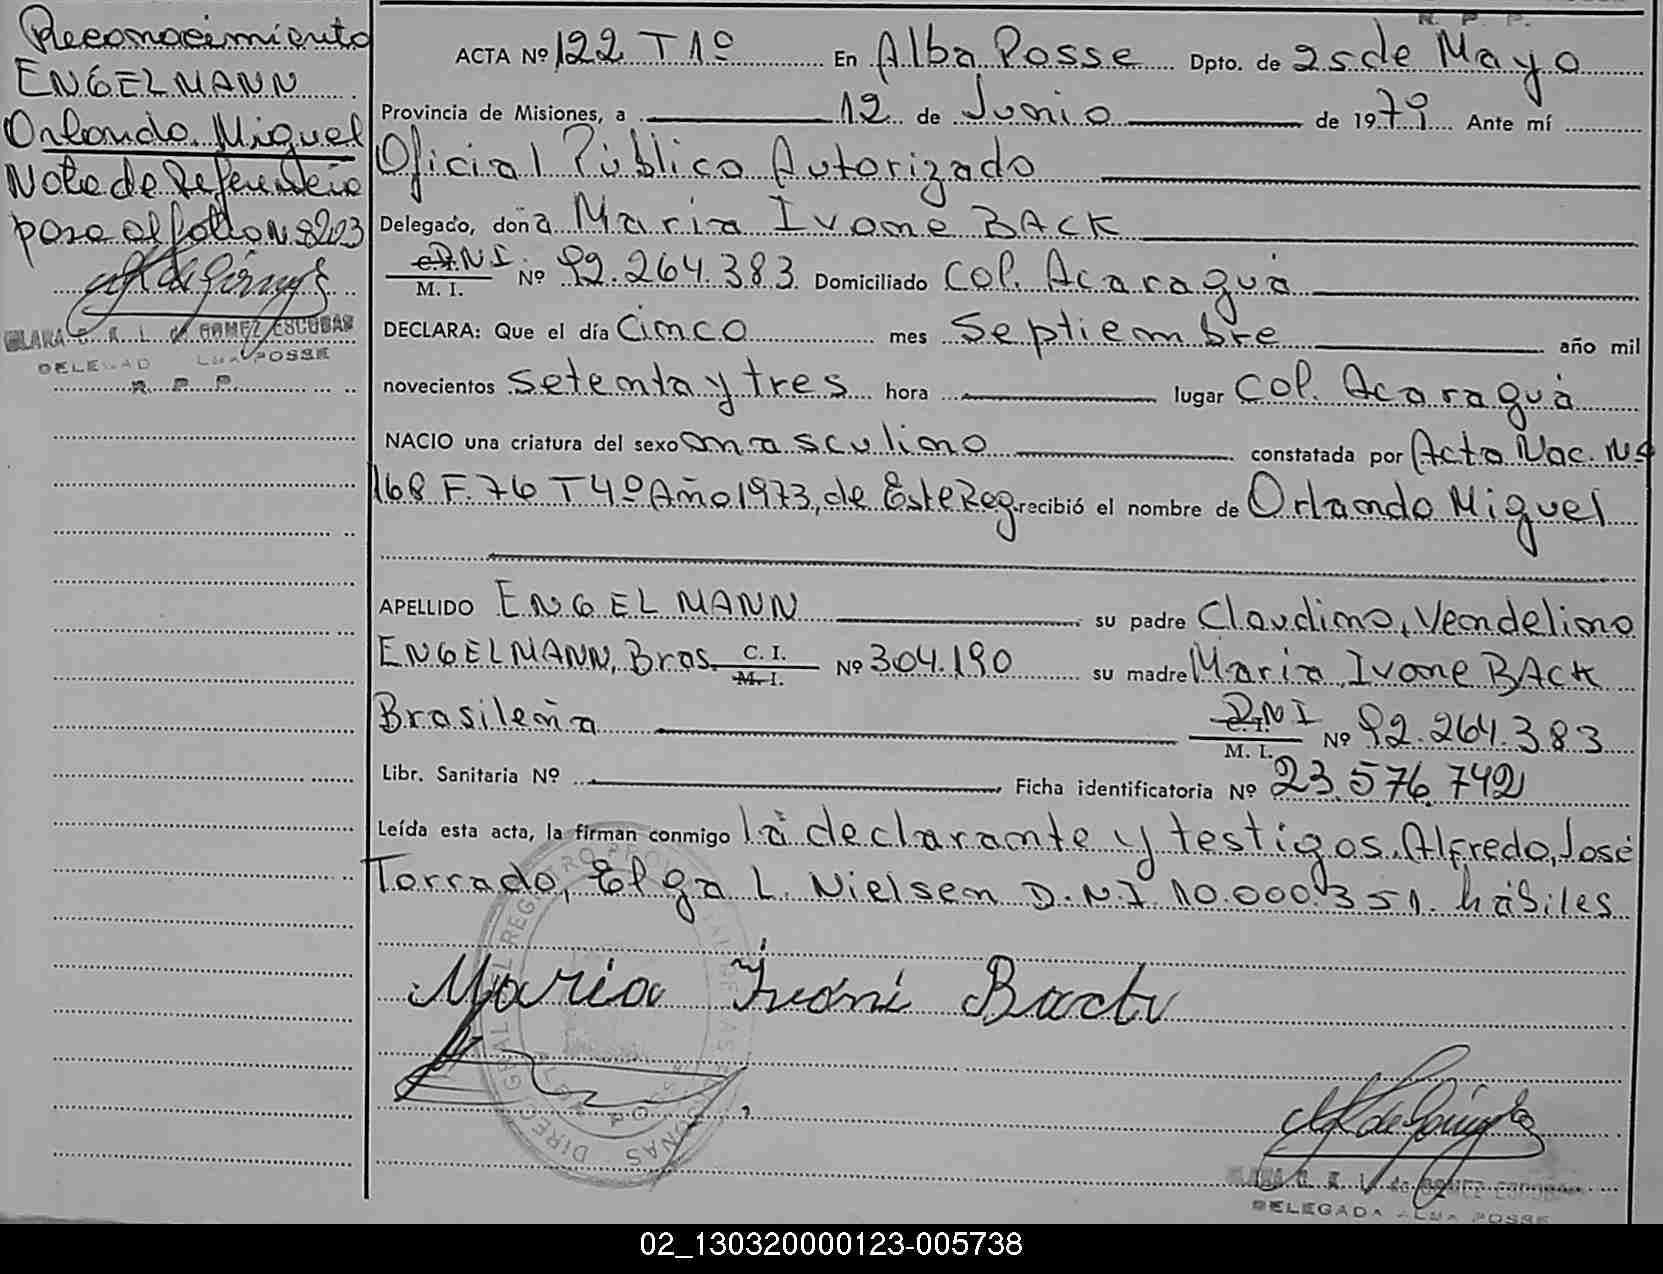 Reconocimiento
ENGELMANN
Orlando Miguel
Nota de Referencia
pasa al folio Nº 203
CLARA C. R. L. de GOMEZ ESCOBAR
DELEGAD ALBA POSSE
R. P. P.
R. P. P.
ACTA Nº 122 T 1º En Alba Posse Dpto. de 25 de Mayo
Provincia de Misiones, a 12 de Junio de 1979 Ante mí
Oficial Público Autorizado
Delegado, doña Maria Ivone BACK
D.N.I. Nº 92.264.383 Domiciliado Col. Acaraguá
M. I.
DECLARA: Que el día Cinco mes Septiembre año mil
novecientos setenta y tres hora lugar Col. Acaraguá
NACIO una criatura del sexo masculino constatada por Acta Nac. Nº
168 F. 76 T 4º Año 1973, de Este Reg. recibió el nombre de Orlando Miguel
APELLIDO ENGELMANN su padre Claudino, Vendelino
ENGELMANN, Bras. C. I. Nº 304.190 su madre Maria Ivone BACK
M. I.
Brasileña D.N.I. Nº 92.264.383
C. I.
M. I.
Libr. Sanitaria Nº Ficha identificatoria Nº 23.576.742
Leída esta acta, la firman conmigo la declarante y testigos, Alfredo, José
Torrado, Elga L. Nielsen D.N.I 10.000.351. hábiles
Maria Ivoni Back
CLARA C. R. L. de GOMEZ ESCOBAR
DELEGADA ALBA POSSE
02_130320000123-005738